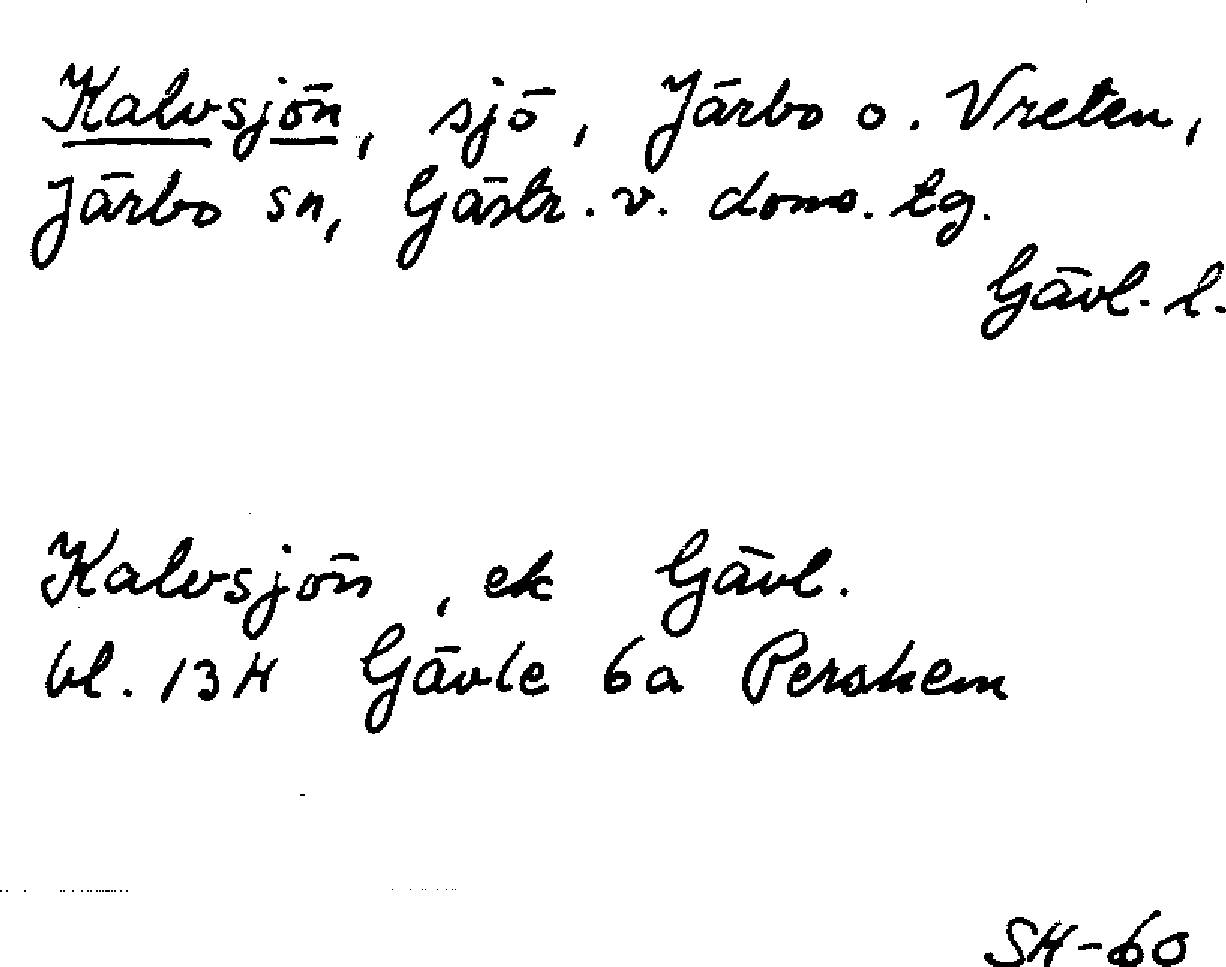 Kalvsjön, sjö, Järbo o. Vreten,
Järbo sn, Gästr. v. doms. tg.
Gävl. l.
Kalvsjön, ek Gävl.
bl. 13H Gävle 6a Pershem
SH-60